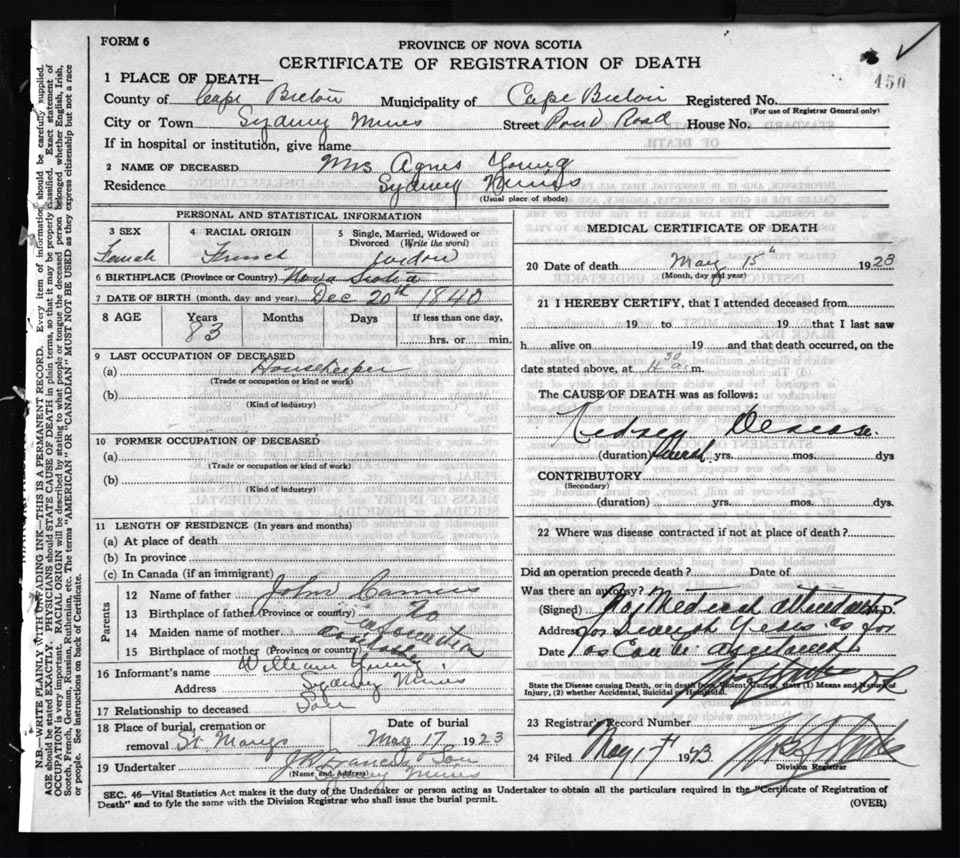 FORM 6
PROVINCE OF NOVA SCOTIA
CERTIFICATE OF REGISTRATION OF DEATH
450
1 PLACE OF DEATH—
County of Cape Breton Municipality of Cape Breton Registered No.
(For use of Registrar General only)
City or Town Sydney Mines Street Pond Road House No.
If in hospital or institution, give name
2 NAME OF DECEASED Mrs Agnes Young
Residence Sydney Mines
(Usual place of abode)
PERSONAL AND STATISTICAL INFORMATION
3 SEX Female
4 RACIAL ORIGIN French
5 Single, Married, Widowed or Divorced (Write the word)
6 BIRTHPLACE (Province or Country) Nova Scotia
7 DATE OF BIRTH (month, day and year) Dec 20th 1840
8 AGE Years 83 Months Days If less than one day, hrs. or min.
9 LAST OCCUPATION OF DECEASED
(a) Housekeeper
(Trade or occupation or kind or work)
(b)
(Kind of industry)
10 FORMER OCCUPATION OF DECEASED
(a)
(Trade or occupation or kind or work)
(b)
(Kind of industry)
11 LENGTH OF RESIDENCE (In years and months)
(a) At place of death
(b) In province
(c) In Canada (if an immigrant)
Parents
12 Name of father John
13 Birthplace of father (Province or country) no
14 Maiden name of mother information
15 Birthplace of mother (Province or country)
16 Informant's name William Young
Address Sydney Mines
17 Relationship to deceased Son
18 Place of burial, cremation or removal St Marys
Date of burial May 17 1923
19 Undertaker Son
(Name and Address) Sydney Mines
MEDICAL CERTIFICATE OF DEATH
20 Date of death May 15th 1923
(Month, day and year)
21 I HEREBY CERTIFY, that I attended deceased from
19 to 19 that I last saw
h alive on 19 and that death occurred, on the
date stated above, at 4 30 a. m.
The CAUSE OF DEATH was as follows:
Kidney Desease.
(duration) yrs. mos. dys
CONTRIBUTORY
(Secondary)
(duration) yrs. mos. dys.
22 Where was disease contracted if not at place of death?
Did an operation precede death? Date of
Was there an autopsy?
(Signed) No Medical attendant M.D.
Address for Several Years as far
Date as can be
State the Disease causing Death, or in death from Violent Causes, state (1) Means and Nature of
Injury, (2) whether Accidental, Suicidal or Homicidal.
23 Registrar's Record Number
24 Filed May 17 1923
Division Registrar
SEC. 46—Vital Statistics Act makes it the duty of the Undertaker or person acting as Undertaker to obtain all the particulars required in the "Certificate of Registration of
Death" and to fyle the same with the Division Registrar who shall issue the burial permit.
(OVER)
N.B.—WRITE PLAINLY WITH UNFADING INK—THIS IS A PERMANENT RECORD. Every item of information should be carefully supplied.
AGE should be stated EXACTLY. PHYSICIANS should STATE CAUSE OF DEATH in plain terms, so that it may be properly classified. Exact statement of
OCCUPATION is very important. RACIAL ORIGIN will be described by stating to what people or tongue the deceased person belonged whether English, Irish,
Scotch, French, German, Russian, Ruthenian, etc. The terms "AMERICAN" OR "CANADIAN" MUST NOT BE USED as they express citizenship but not a race
or people. See instructions on back of Certificate.